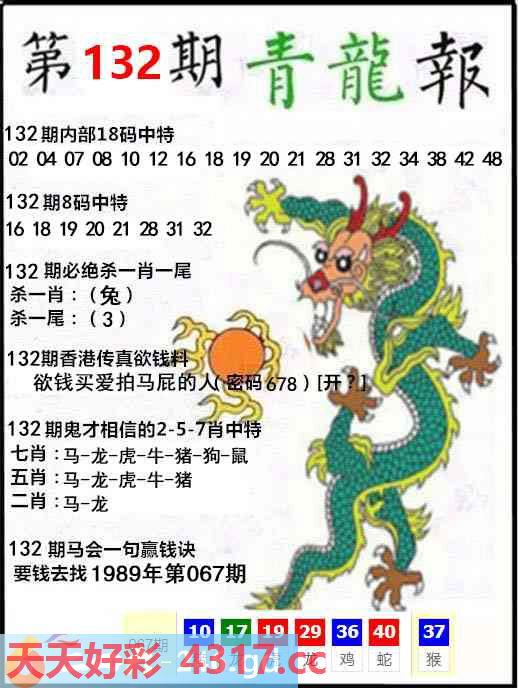 第132期青龍報
132期内部18码中特
02 04 07 08 10 12 16 18 19 20 21 28 31 32 34 38 42 48
132期8码中特
16 18 19 20 21 28 31 32
132期必绝杀一肖一尾
杀一肖：（兔）
杀一尾：（3）
132期香港传真欲钱料
欲钱买爱拍马屁的人（密码678）[开？]
132期鬼才相信的2-5-7肖中特
七肖：马-龙-虎-牛-猪-狗-鼠
五肖：马-龙-虎-牛-猪
二肖：马-龙
132期马会一句赢钱诀
要钱去找1989年第067期
067期 10 17 19 29 36 40 37
龙 鸡 蛇 猴
天天好彩 4317.cc